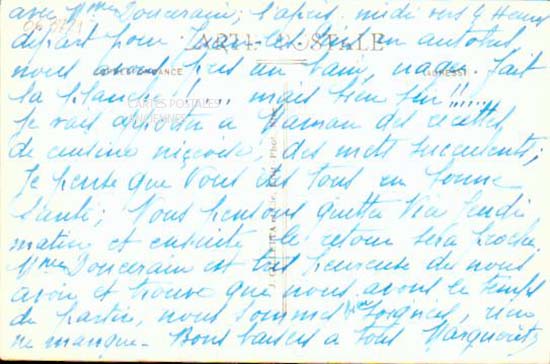 avec Mme Doucerain; l'après-midi vers 4 heures
départ pour Juan-les-Pins en autobus
nous avons pris un bain, nagé, fait
la planche !.... mais bien sûr !!!....
Je vais apporter à Maman des recettes
de cuisine niçoise, des mets succulents;
Je pense que vous êtes tous en bonne
santé; Nous pensons quitter Jeudi
matin et ensuite le retour sera proche.
Mme Doucerain est très heureuse de nous
avoir et trouve que nous avons le temps
de partir, nous sommes bien soignées, rien
ne manque. Bons baisers à tous Marguerite
CARTE POSTALE
CORRESPONDANCE
(ADRESSE)
CARTES POSTALES
ANCIENNES